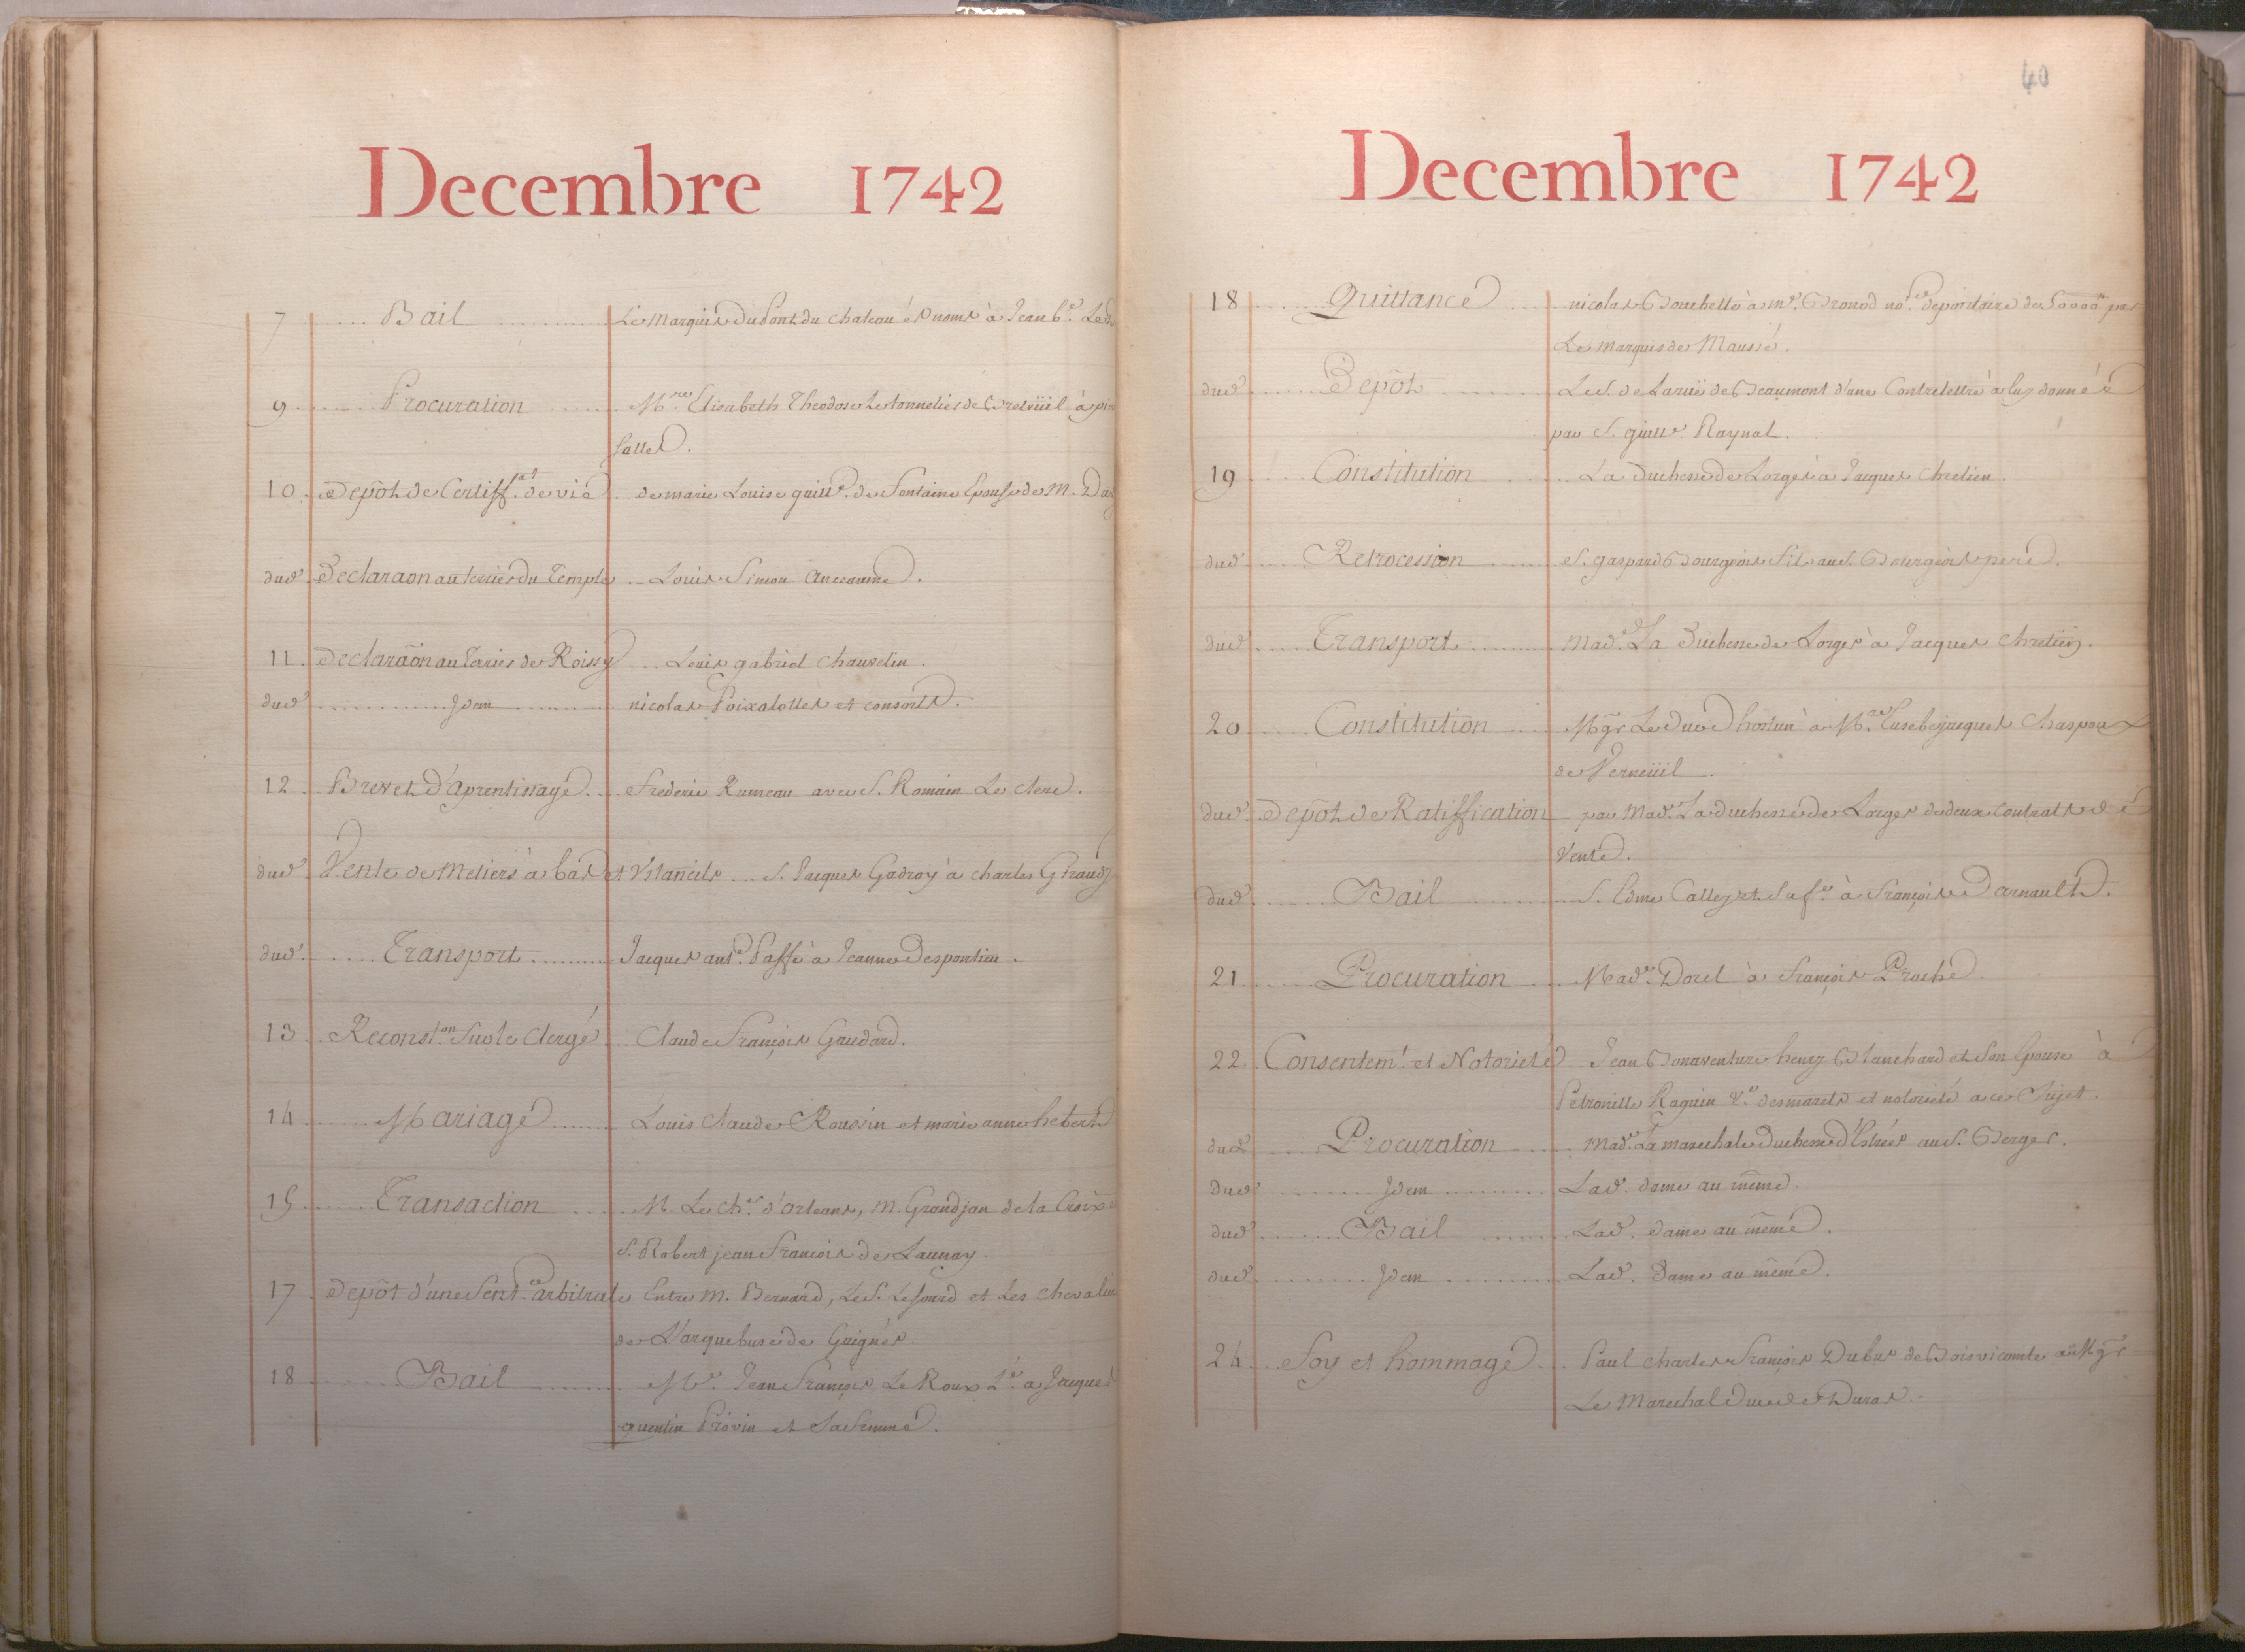 Decembre 1742
7 Bail Le Marquis du Pont du Chateau és noms à Jean b.e
9 Procuration M.re Elisabeth Theodose Le tonnelier de Breteüil à
10 Depôt de Certiff.at de vie de marie Louise guill.e de Fontaine Epouse de M.
dud. Declaraon au terrier du Temple Louis Simon
11 Declaraõn au Terrier de Roissy Louis gabriel Chauvelin.
dud. Idem nicolas Poixalolles et consorts.
12 Brevet d'Aprentissage Frederic Rameau avec S. Romain Le Clerc.
dud. Vente de Metiers à bas et Vstancils S. Jacques Gadroy à charles
dud. Transport Jacques ant.e Paffe à Jeanne Despontieu.
13 Reconst.on Sur le Clergé Claude François Gaudard.
14 Mariage Louis Claude Roussin et marie anne hebert
15 Transaction M. Le Ch.er d'Orleans, M. Grandjan de la Croix
S. Robert jean François de Launay.
17 Depôt d'une Sent.ce arbitrale Entre M. Bernard, Le S. Lesourd et Les
de L'arquebuse de Guignes.
18 Bail M.e Jean François Le Roux P.e a Jacques
quentin Provin et Sa femme.
40
Decembre 1742
18 Quittance nicolas Bourbette à m.e Bronod no.re depositaire de 50000.lt par
Le Marquis de Maussé.
dud. Depôt Le S. de Larüe de Beaumont d'une Contrelettre à luy donnée
par S. guill.e Raynal.
19 Constitution La Duchesse de Lorges à Jacques Chretien.
dud. Retrocession S. gaspard Bourgeois Fils au S. Bourgeois pere.
dud. Transport Mad.e La Duchesse de Lorges à Jacques Chretien.
20 Constitution Mgr Le Duc d'hostun à M.re Eusebe jacques Chaspoux
de Verneüil.
dud. Depôt de Ratiffication par Mad.e La duchesse de Lorges de deux contrats de
Vente.
dud. Bail S. Edme Calley et Sa f.e à François Darnault.
21 Procuration Mad.e Dorel à François Pruché
22 Consentem.t et Notorieté Jean Bonaventure henry Blanchard et Son Epouse à
Petronille Raguin V.e desmarets et notorieté a ce Sujet.
dud. Procuration Mad.e La marechale Duchesse d'Estrées au S. Berger.
dud. Idem Lad. dame au même.
dud. Bail Lad. dame au même.
dud. Idem Lad. Dame au même.
24 Foy et hommage Paul Charles François Dubus de Boisvicomte à Mgr
Le Marechal Duc de Duras.